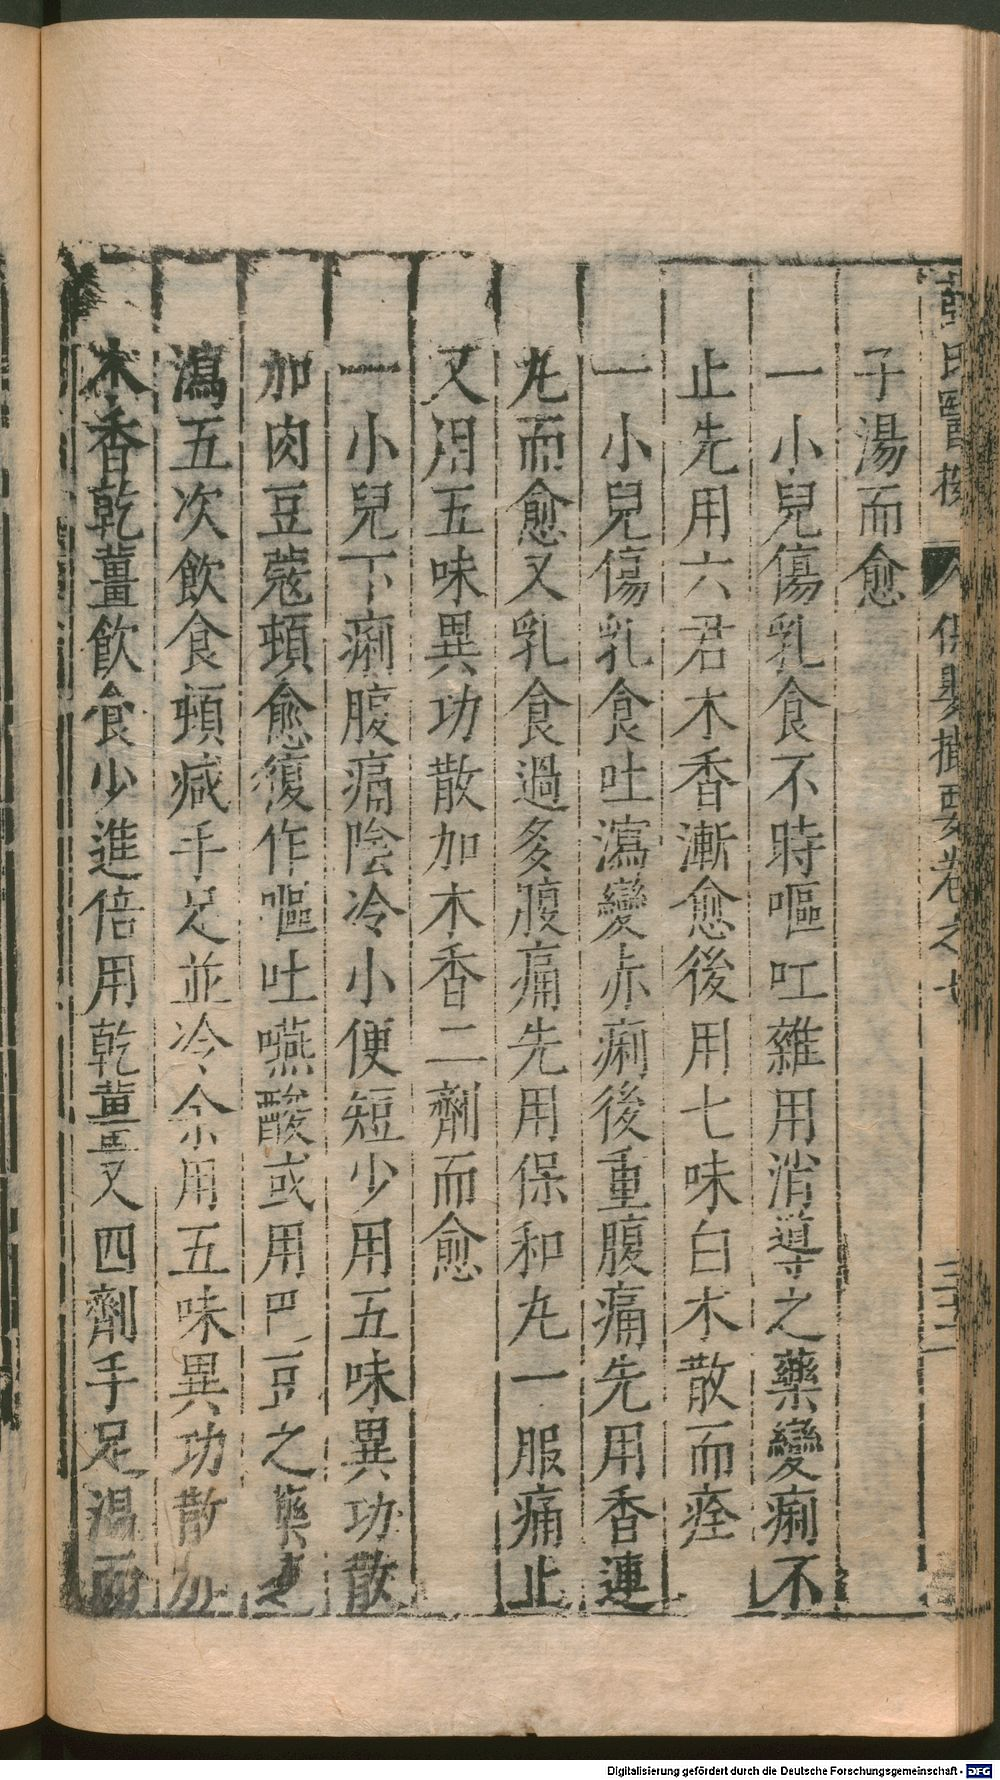 子湯而愈
一小兒傷乳食不時嘔吐雜用消導之藥變痢不
止先用六君木香漸愈後用七味白朮散而痊
一小兒傷乳食吐瀉變赤痢後重腹痛先用香連
丸而愈又乳食過多腹痛先用保和丸一服痛止
又用五味異功散加木香二劑而愈
一小兒下痢腹痛陰冷小便短少用五味異功散
加肉豆蔻頓愈復作嘔吐嚥酸或用巴豆之藥連
瀉五次飲食頓減手足並冷余用五味異功散加
木香乾薑飲食少進倍用乾薑又四劑手足溫而
薛氏醫按
保嬰撮要卷之七
三十二
Digitalisierung gefördert durch die Deutsche Forschungsgemeinschaft - DFG